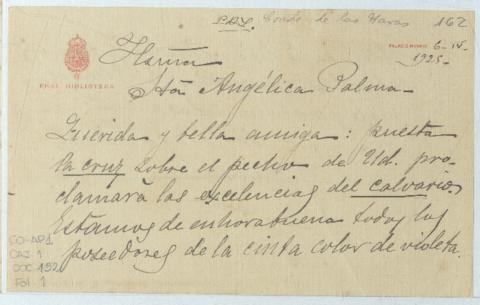 Conde de las Navas 162
PALACIO 6-IV-
1925-
REAL BIBLIOTECA
Srta Angélica Palma-
Querida y bella amiga: puesta
la cruz sobre el pecho de Ud. pro-
clamará las excelencias del calvario.
Estamos de enhorabuena todos los
poseedores de la cinta color de violeta.
CO-AP1
CAJ-1
DOC-152
Fol-1